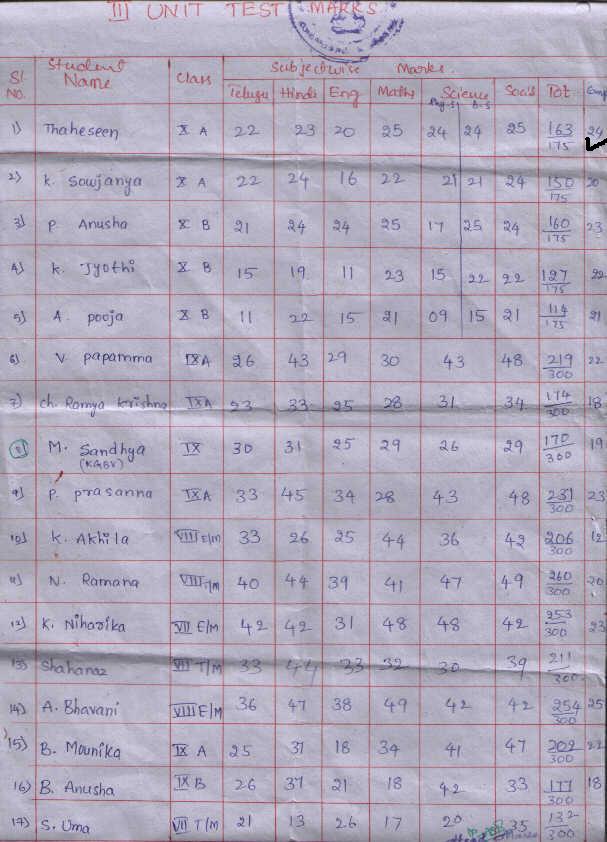 III UNIT TEST MARKS
Sl. No. Student Name Class Subjectwise Marks.
Telugu Hindi Eng Maths Science Phy.S B.S Soc.s Tot Comp
1) Thaheseen X A 22 23 20 25 24 24 25 163/175 24
2) K. Sowjanya X A 22 24 16 22 21 21 24 150/175 20
3) P. Anusha X B 21 24 24 25 17 25 24 160/175 23
4) K. Jyothi X B 15 19 11 23 15 22 22 127/175 22
5) A. pooja X B 11 22 15 21 09 15 21 114/175 21
6) V. papamma IX A 26 43 29 30 43 48 219/300 22
7) ch. Ramya krishna IX A 23 33 25 28 31 34 174/300 18
8) M. Sandhya (KGBV) IX 30 31 25 29 26 29 170/300 19
9) P. prasanna IX A 33 45 34 28 43 48 231/300 23
10) K. Akhila VIII E/M 33 26 25 44 36 42 206/300 12
11) N. Ramana VIII T/M 40 44 39 41 47 49 260/300 20
12) K. Niharika VII E/M 42 42 31 48 48 42 253/300 23
13) Shahanaz VII T/M 33 44 33 32 30 39 211/300
14) A. Bhavani VIII E/M 36 47 38 49 42 42 254/300 25
15) B. Mounika IX A 25 37 18 34 41 47 202/300 22
16) B. Anusha IX B 26 37 21 18 42 33 177/300 18
17) S. Uma VII T/M 21 13 26 17 20 35 132/300